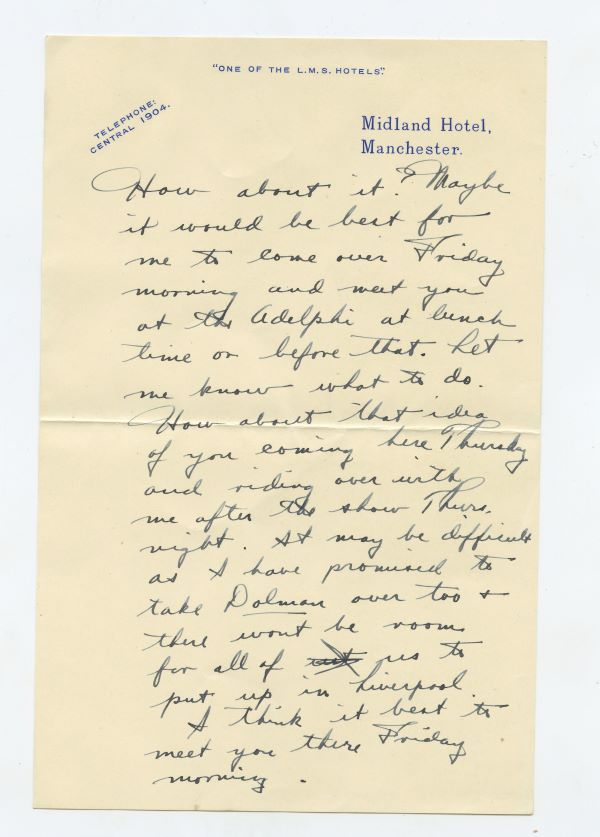 "ONE OF THE L.M.S. HOTELS".
TELEPHONE:
CENTRAL 1904.
Midland Hotel,
Manchester.
How about it? Maybe
it would be best for
me to come over Friday
morning and meet you
at the Adelphi at lunch
time or before that. Let
me know what to do.
How about that idea
of you coming here Thursday
and riding over with
me after the show Thurs.
night. It may be difficult
as I have promised to
take Dolman over too &
there wont be room
for all of us to
put up in Liverpool.
I think it best to
meet you there Friday
morning.